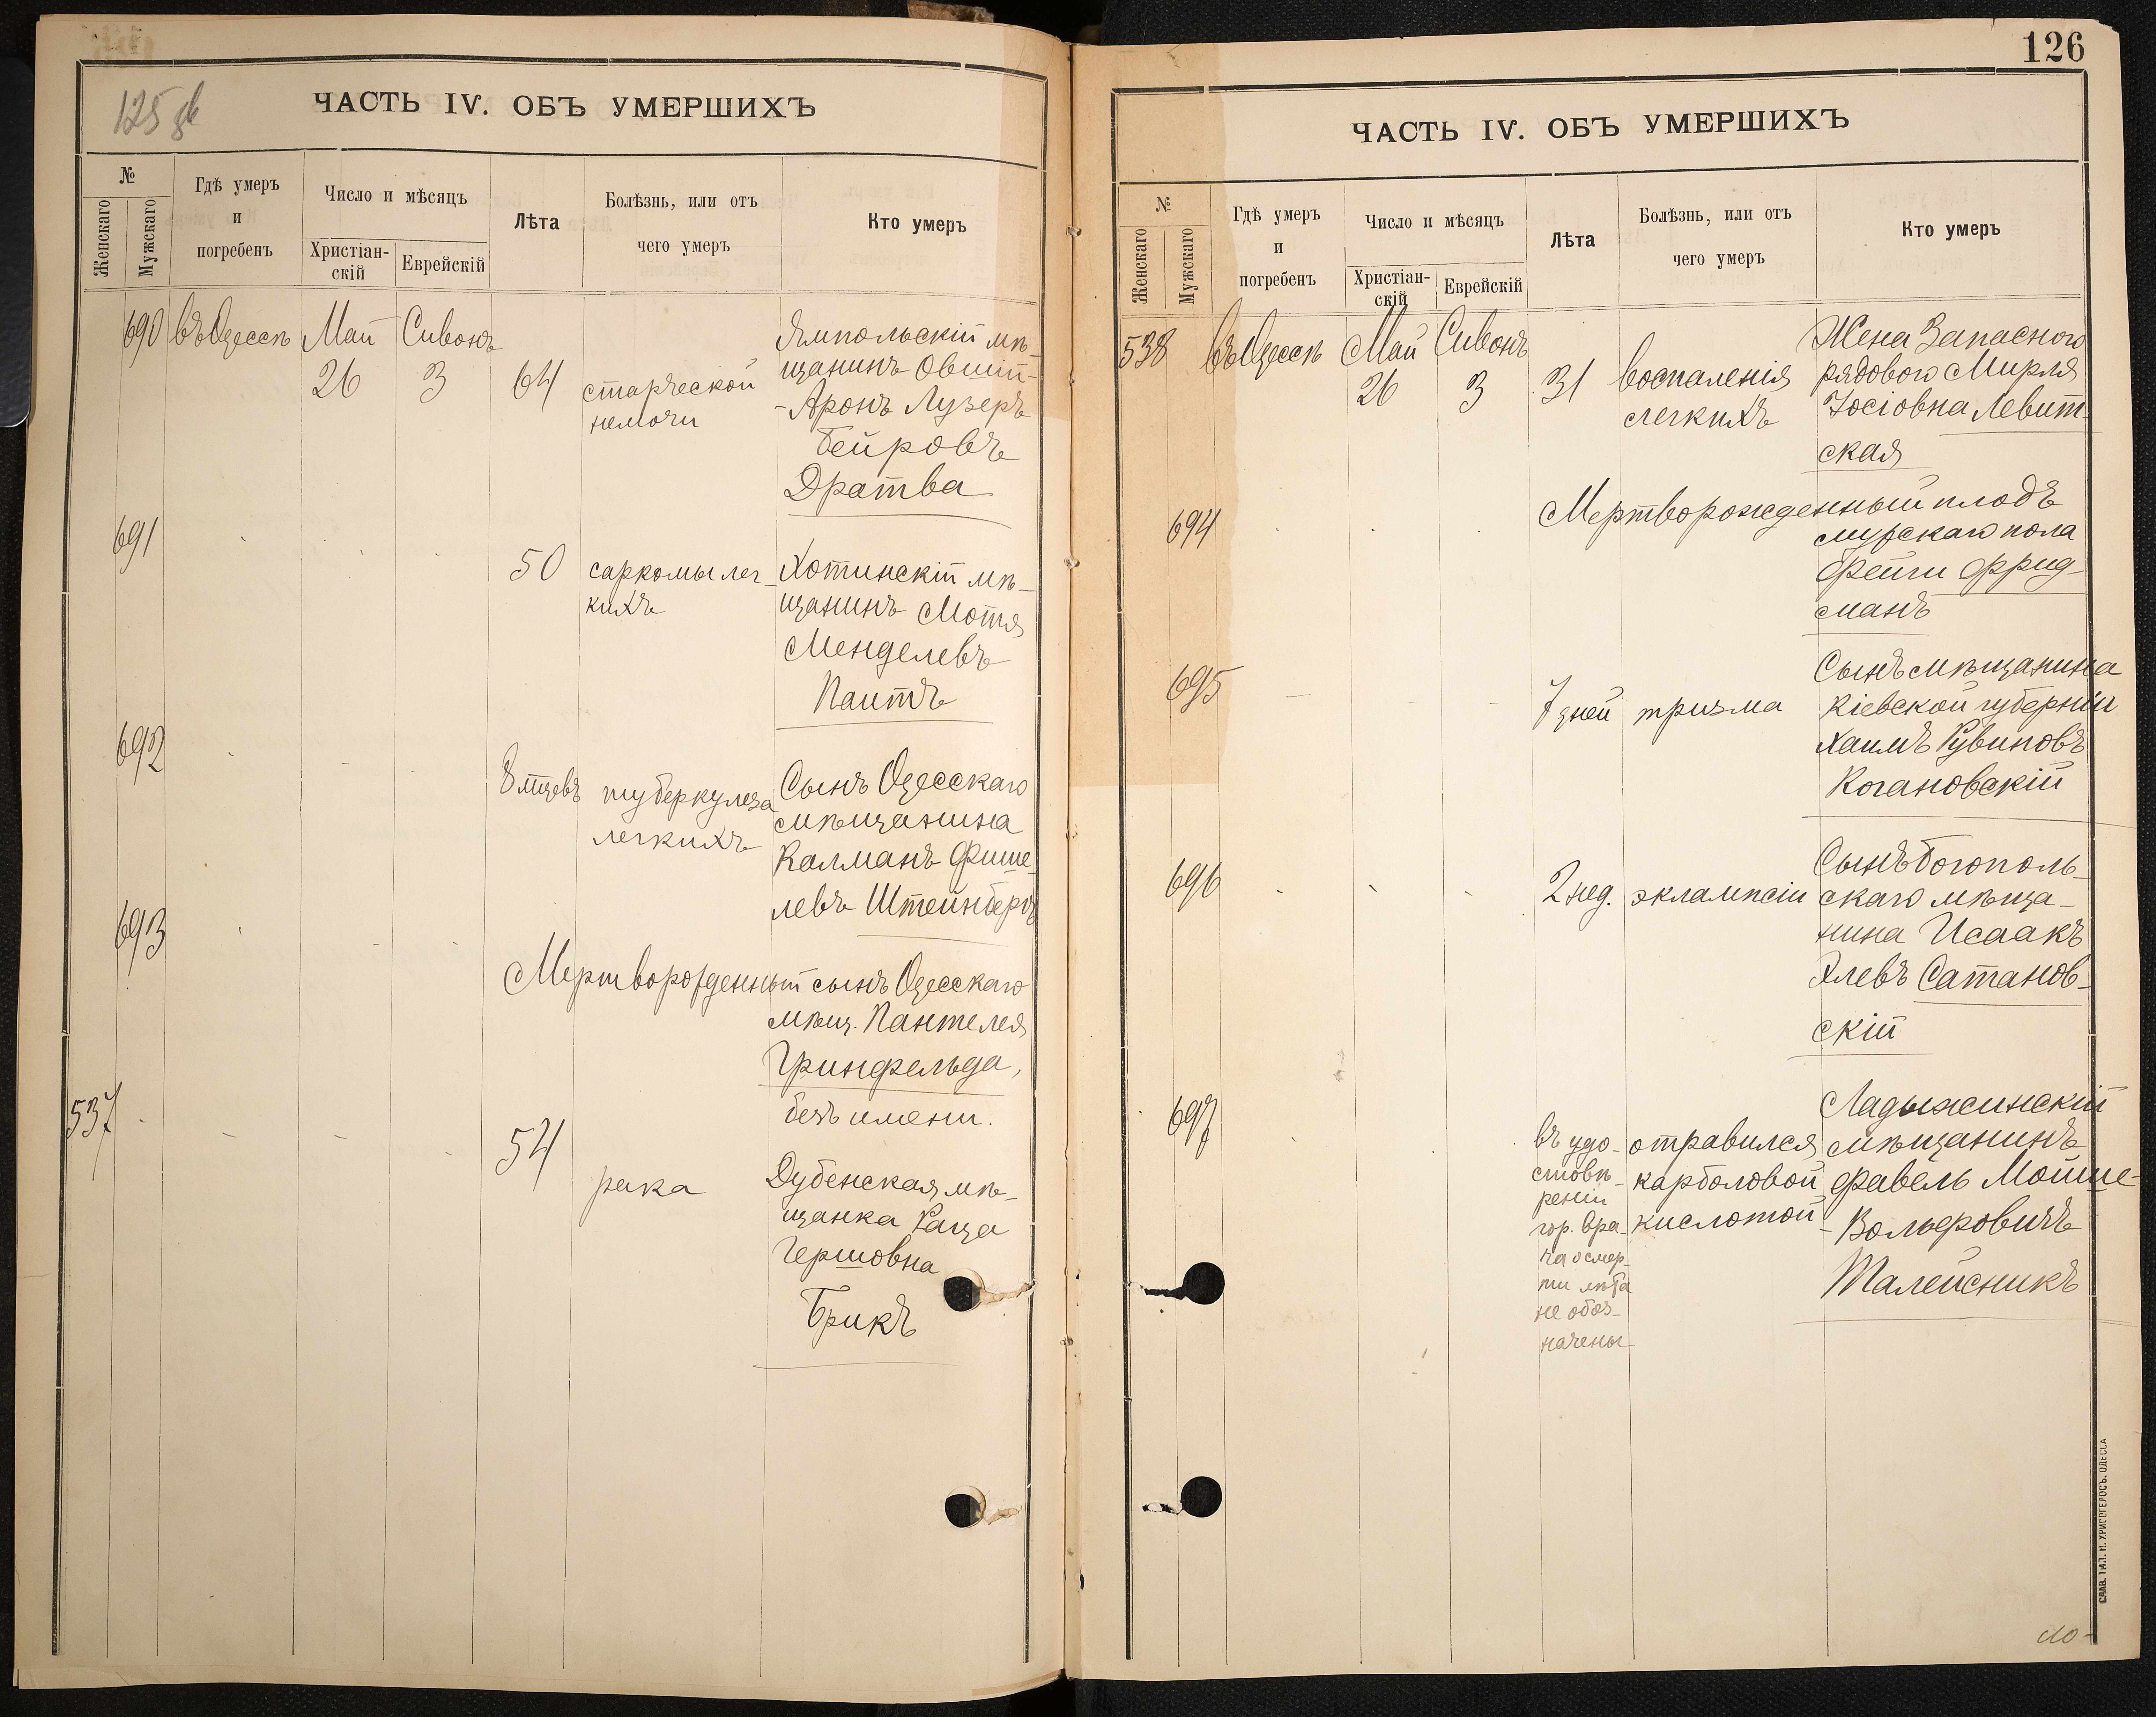 125 зв
ЧАСТЬ IV. ОБЪ УМЕРШИХЪ
№
Женскаго
Мужскаго
Гдѣ умеръ
и
погребенъ
Число и мѣсяцъ
Христіан-
скій
Еврейскій
Лѣта
Болѣзнь, или отъ
чего умеръ
Кто умеръ
690 въ Одессѣ Май Сивонъ
26 3 64
старческой
немочи
Ямпольскій мѣ-
щанинъ Овшій-
-Аронъ Лузеръ
Бейровъ
Дратва
691
50 саркомы лег-
кихъ
Хотинскій мѣ-
щанинъ Мотя
Менделевъ
Паитъ
692
8 мцевъ туберкулеза
легкихъ
Сынъ Одесскаго
мѣщанина
Калманъ Фише-
левъ Штейнбергъ
693
Мертворожденный сынъ Одесскаго
мѣщ. Пантелея
Гринфельда,
безъ имени.
537
54 рака
Дубенская мѣ-
щанка Раца
Гершовна
Брикъ
126
ЧАСТЬ IV. ОБЪ УМЕРШИХЪ
№
Женскаго
Мужскаго
Гдѣ умеръ
и
погребенъ
Число и мѣсяцъ
Христіан-
скій
Еврейскій
Лѣта
Болѣзнь, или отъ
чего умеръ
Кто умеръ
538 въ Одессѣ Май Сивонъ
26 3 31 воспаленія
легкихъ
Жена Запасного
рядового Мирля
Іосіовна Левит-
ская
694
Мертворожденный плодъ
мужскаго пола
Фейги Фрид-
манъ
695
7 дней тризма
Сынъ мѣщанина
Кіевской губерніи
Хаимъ Рувиновъ
Когановскій
696
2 нед. эклампсіи
Сынъ Богополь-
скаго мѣща-
нина Исаакъ
Хлевъ Сатанов-
скій
697
въ удо-
стовѣ-
реніи
гор. вра-
ча о смер-
ти лѣта
не обоз-
начены
отравился
карболовой
кислотой
Ладыжинскій
мѣщанинъ
Фавель Мойше-
-Вольфовичъ
Талейсникъ
СЛАВ. ТИП. Н. ХРИСОГЕЛОСЪ. ОДЕССА